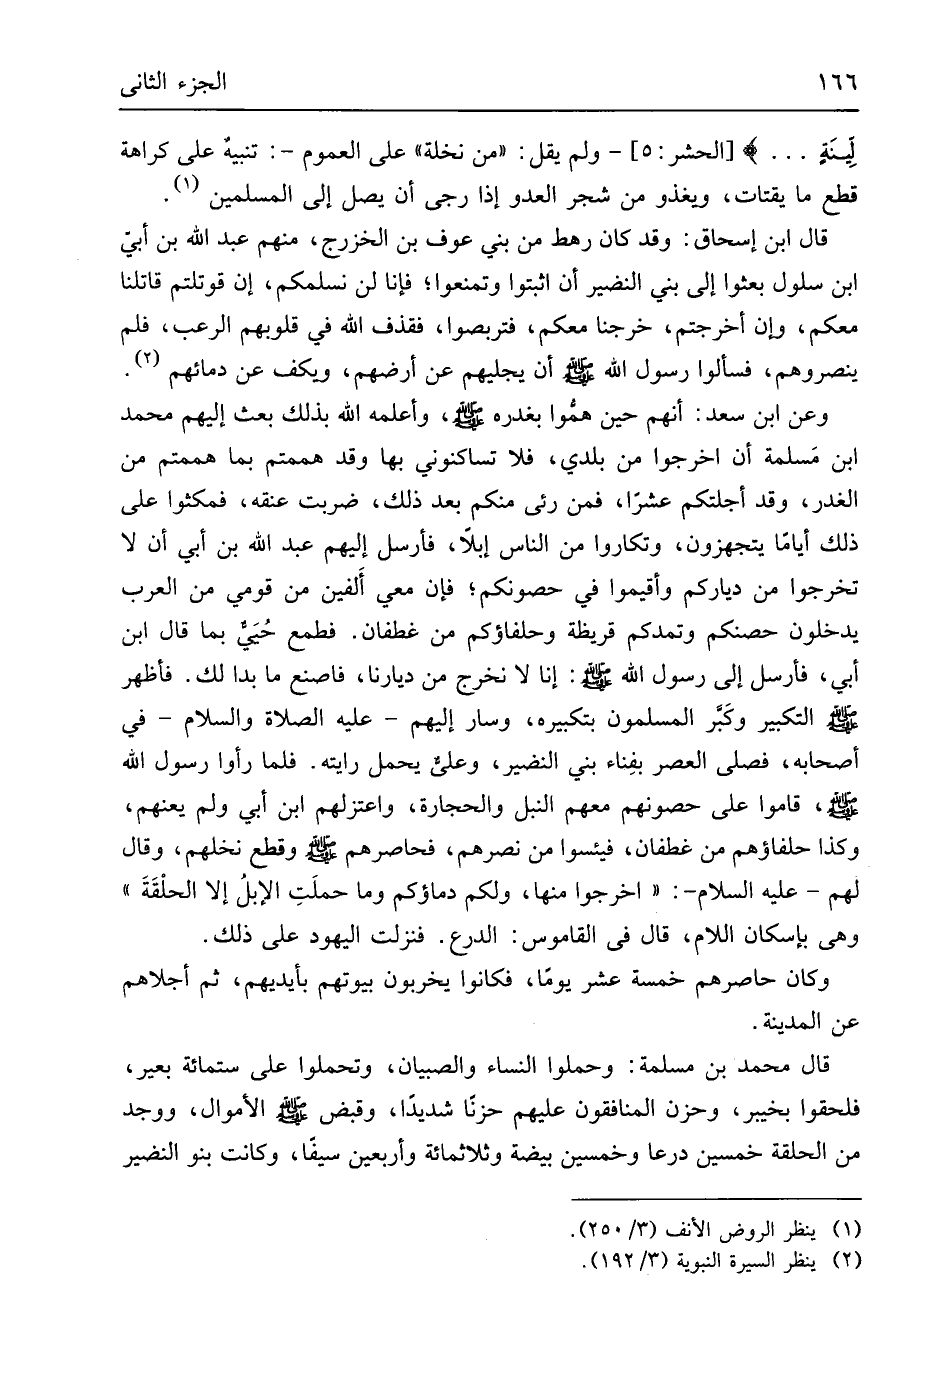 ١٦٦ الجزء الثانى
لِّينَةٍ . . . ﴾ [الحشر: ٥] - ولم يقل: «من نخلة» على العموم -: تنبيهٌ على كراهة
قطع ما يقتات، ويغذو من شجر العدو إذا رجى أن يصل إلى المسلمين (١).
قال ابن إسحاق: وقد كان رهط من بني عوف بن الخزرج، منهم عبد الله بن أبيّ
ابن سلول بعثوا إلى بني النضير أن اثبتوا وتمنعوا؛ فإنا لن نسلمكم، إن قوتلتم قاتلنا
معكم، وإن أخرجتم، خرجنا معكم، فتربصوا، فقذف الله في قلوبهم الرعب، فلم
ينصروهم، فسألوا رسول الله ﷺ أن يجليهم عن أرضهم، ويكف عن دمائهم (٢).
وعن ابن سعد: أنهم حين همُّوا بغدره ﷺ، وأعلمه الله بذلك بعث إليهم محمد
ابن مَسلمة أن اخرجوا من بلدي، فلا تساكنوني بها وقد هممتم بما هممتم من
الغدر، وقد أجلتكم عشرًا، فمن رئى منكم بعد ذلك، ضربت عنقه، فمكثوا على
ذلك أيامًا يتجهزون، وتكاروا من الناس إبلًا، فأرسل إليهم عبد الله بن أبي أن لا
تخرجوا من دياركم وأقيموا في حصونكم؛ فإن معي أَلفين من قومي من العرب
يدخلون حصنكم وتمدكم قريظة وحلفاؤكم من غطفان. فطمع حُيَيٌّ بما قال ابن
أبي، فأرسل إلى رسول الله ﷺ: إنا لا نخرج من ديارنا، فاصنع ما بدا لك. فأظهر
ﷺ التكبير وكَبَّر المسلمون بتكبيره، وسار إليهم - عليه الصلاة والسلام - في
أصحابه، فصلى العصر بفِناء بني النضير، وعلىٌّ يحمل رايته. فلما رأوا رسول الله
ﷺ، قاموا على حصونهم معهم النبل والحجارة، واعتزلهم ابن أبي ولم يعنهم،
وكذا حلفاؤهم من غطفان، فيئسوا من نصرهم، فحاصرهم ﷺ وقطع نخلهم، وقال
لهم - عليه السلام-: « اخرجوا منها، ولكم دماؤكم وما حملَتِ الإبلُ إلا الحلْقَةَ »
وهى بإسكان اللام، قال فى القاموس: الدرع. فنزلت اليهود على ذلك.
وكان حاصرهم خمسة عشر يومًا، فكانوا يخربون بيوتهم بأيديهم، ثم أجلاهم
عن المدينة.
قال محمد بن مسلمة: وحملوا النساء والصبيان، وتحملوا على ستمائة بعير،
فلحقوا بخيبر، وحزن المنافقون عليهم حزنًا شديدًا، وقبض ﷺ الأموال، ووجد
من الحلقة خمسين درعا وخمسين بيضة وثلاثمائة وأربعين سيفًا، وكانت بنو النضير
(١) ينظر الروض الأنف (٣/ ٢٥٠).
(٢) ينظر السيرة النبوية (٣/ ١٩٢).